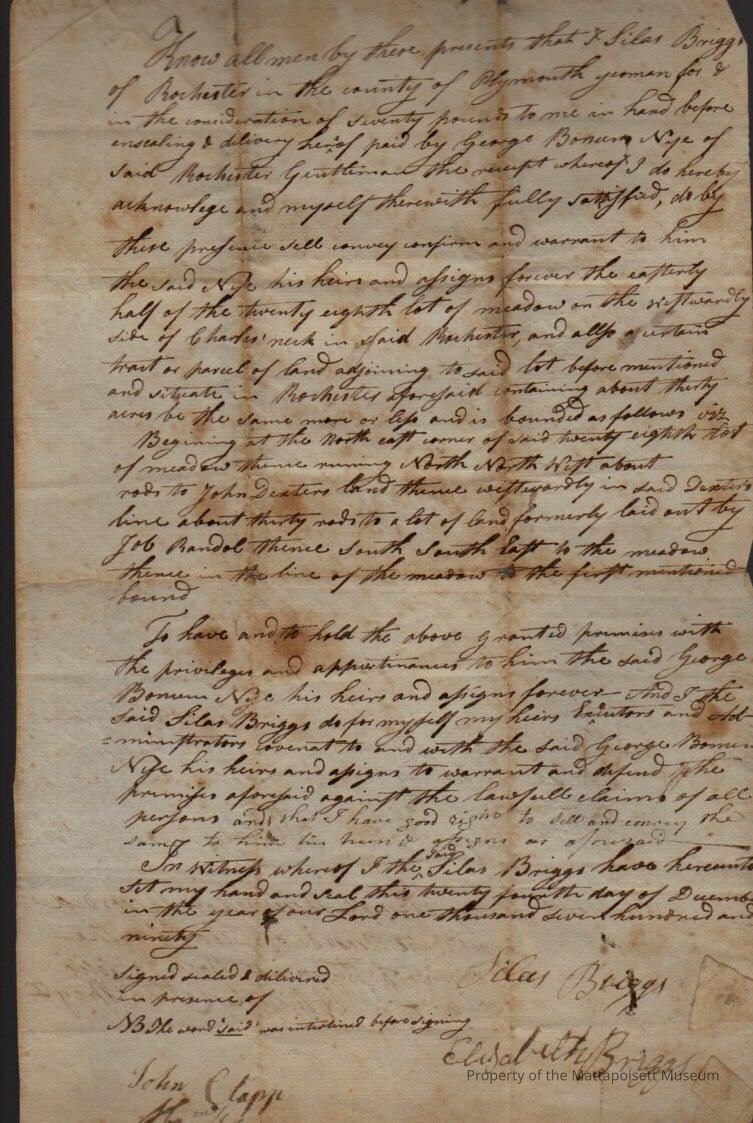 Know all men by these presents that I Silas Briggs
of Rochester in the county of Plymouth yeoman for &
in the consideration of seventy pounds to me in hand before
ensealing & delivery hereof paid by George Bonum Nye of
said Rochester Gentleman the receipt whereof I do hereby
acknowlege and myself therewith fully sattisfied, do by
these presence sell convey confirm and warrant to him
the said Nye his heirs and assigns forever the easterly
half of the twenty eighth lot of meadow on the westwardly
side of Charles' neck in said Rochester, and allso a certain
tract or parcel of land adjoining to said lot before mentioned
and situate in Rochester aforesaid containing about thirty
acres be the same more or less and is bounded as follows viz
Begining at the North east corner of said twenty eighth lot
of meadow thence runing North North West about
rods to John Dexters land thence westwardly in said Dexters
line about thirty rods to a lot of land formerly laid out by
Job Randol thence South South East to the meadow
thence in the line of the meadow to the first mentioned
bound
To have and to hold the above granted premises with
the privileges and appurtinances to him the said George
Bonum Nye his heirs and assigns forever — And I the
said Silas Briggs do for myself my heirs Executors and Ad-
=ministrators Covenat to and with the said George Bonum
Nye his heirs and assigns to warrant and defend the
premises aforesaid against the lawfull claims of all
persons and that I have good right to sell and convey the
same to him his heirs & assigns as aforesaid
In witness whereof I the said Silas Briggs have hereunto
set my hand and seal this twenty fourth day of Decembe
in the year of our Lord one thousand seven hundred and
ninety
Signed sealed & delivered
in presence of
NB The word "said" was interlined before signing
Silas Briggs
Elizabeth Briggs
John Clapp
Property of the Mattapoisett Museum